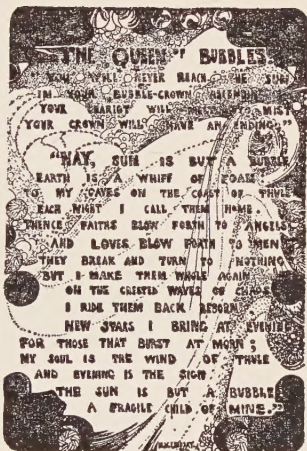 THE QUEEN OF BUBBLES
YOU WILL NEVER REACH THE SUN
IN YOUR BUBBLE-CROWN ASCENDING
YOUR CHARIOT WILL MIST
YOUR CROWN WILL HAVE AN ENDING."
"NAY, SUN IS BUT A BUBBLE
EARTH IS A WHIFF OF FOAM
TO MY CAVES ON THE COAST OF THULE
EACH NIGHT I CALL THEM HOME.
THENCE FAITHS BLOW FORTH TO ANGELS
AND LOVES BLOW FORTH TO MEN
THEY BREAK AND TURN TO NOTHING
BUT I MAKE THEM WHOLE AGAIN
ON THE CRESTED WAVES OF CHAOS
I RIDE THEM BACK REBORN
NEW STARS I BRING AT EVENING
FOR THOSE THAT BURST AT MORN;
MY SOUL IS THE WIND OF THULE
AND EVENING IS THE SIGN
THE SUN IS BUT A BUBBLE
A FRAGILE CHILD OF MINE."